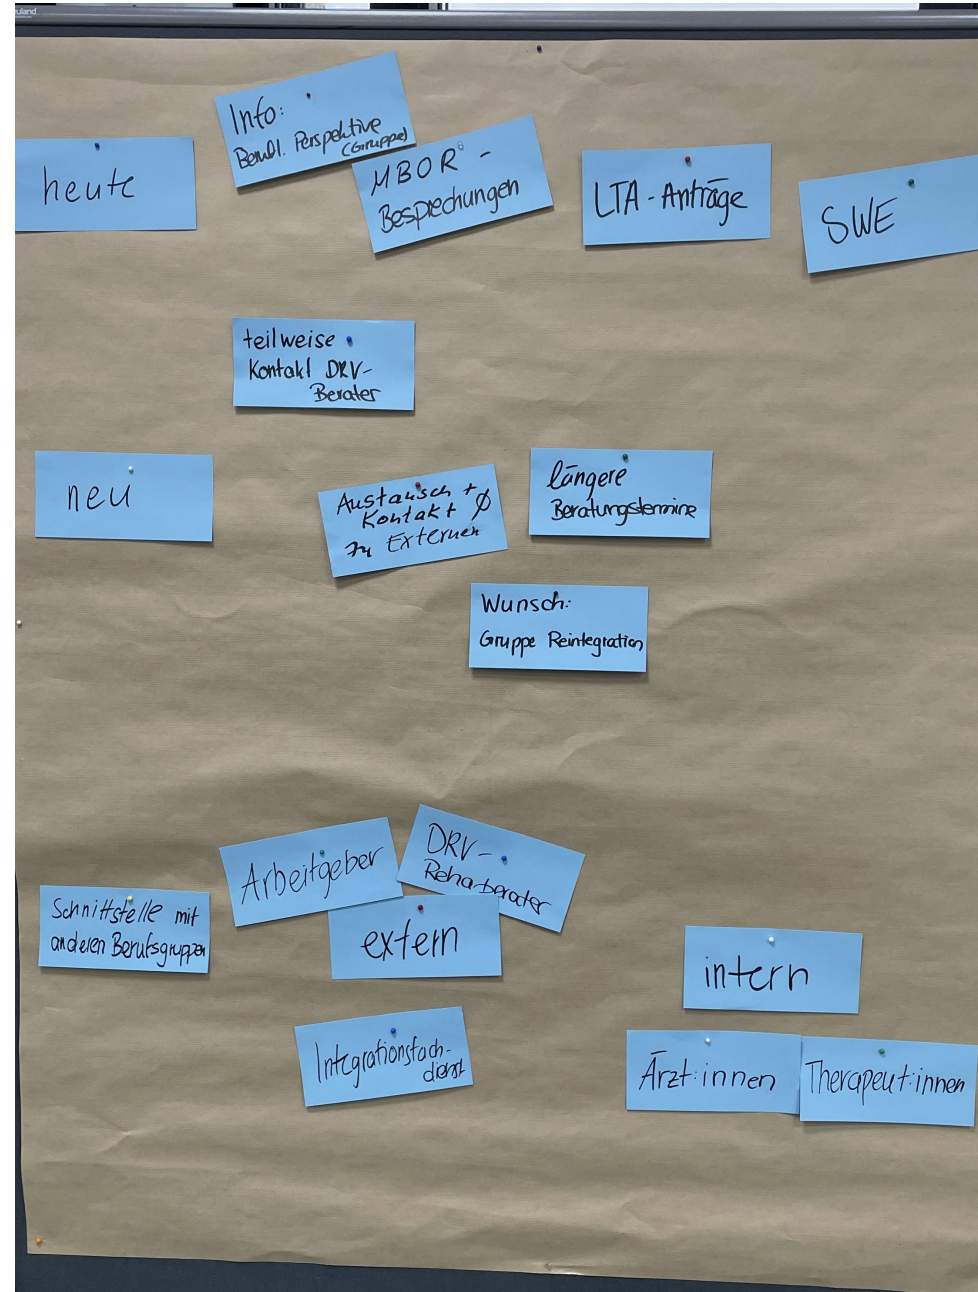 heute
Info:
Berufl. Perspektive
(Gruppe)
MBOR-
Besprechungen
LTA-Anträge
SWE
teilweise
Kontakt DRV-
Berater
neu
Austausch +
Kontakt Ø
zu Externen
längere
Beratungstermine
Wunsch:
Gruppe Reintegration
Schnittstelle mit
anderen Berufsgruppen
Arbeitgeber
DRV-
Rehaberater
extern
Integrationsfach-
dienst
intern
Ärzt:innen
Therapeut:innen